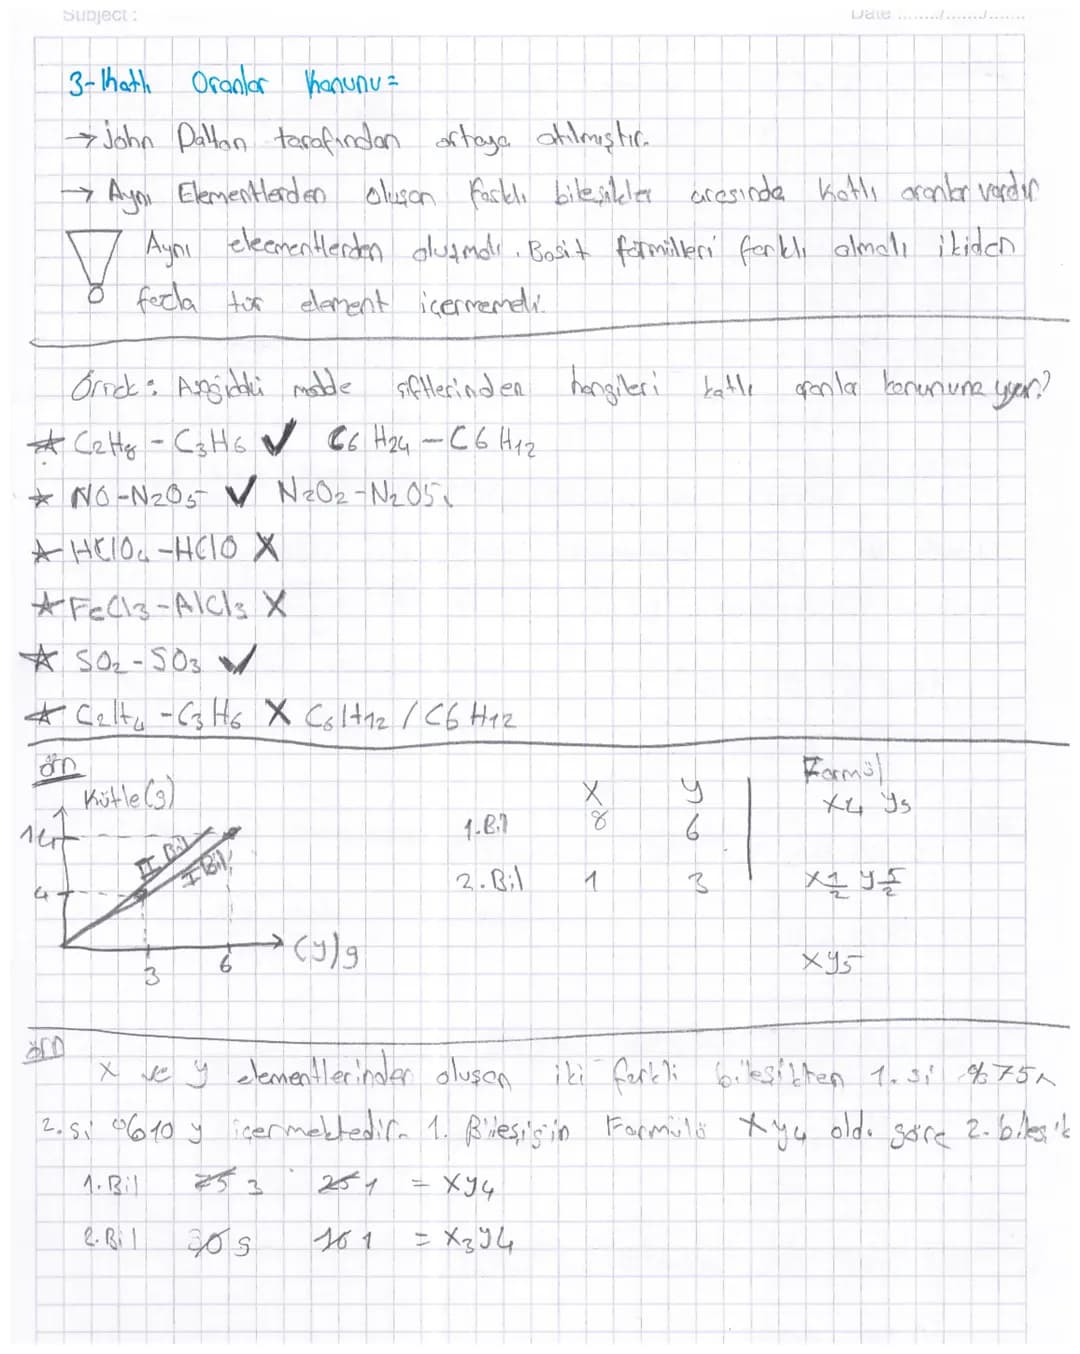 Subject :
Date ......../......../........
3- Katlı Oranlar Kanunu =
→ john Dalton tarafından ortaya atılmıştır.
→ Aynı Elementlerden oluşan farklı bileşikler arasında katlı oranlar vardır
! Aynı elementlerden oluşmalı. Basit formülleri farklı olmalı ikiden
fazla tür element içermemeli.
Örnek : Aşağıdaki madde çiftlerinden hangileri katlı oranlar kanununa uyar?
* C2H8 - C3H6 ✓ C6 H24 - C6 H12
* NO - N2O5 ✓ N2O2 - N2O5
* HClO4 - HClO X
* FeCl3 - AlCl3 X
* SO2 - SO3 ✓
* C2H4 - C3H6 X C6H12 / C6 H12
örn
Kütle(g)
X y Formül
14 II Bil I Bil 1.Bil 8 6 X4 y5
4 2.Bil 1 3 X1/2 y5/2
3 6 (y)g Xy5
örn
X ve y elementlerinden oluşan iki farklı bileşikten 1. si %75
2. si %10 y içermektedir. 1. Bileşiğin Formülü Xy4 old. göre 2. bileşik
1.Bil 75 3 25 1 = Xy4
2.Bil 90 9 10 1 = X3y4